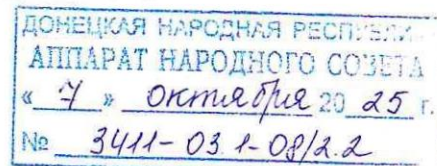 ДОНЕЦКАЯ НАРОДНАЯ
АППАРАТ НАРОДНОГО СОВЕТА
« 7 » октября 20 25 г.
№ 3411-03.1-08/2.2